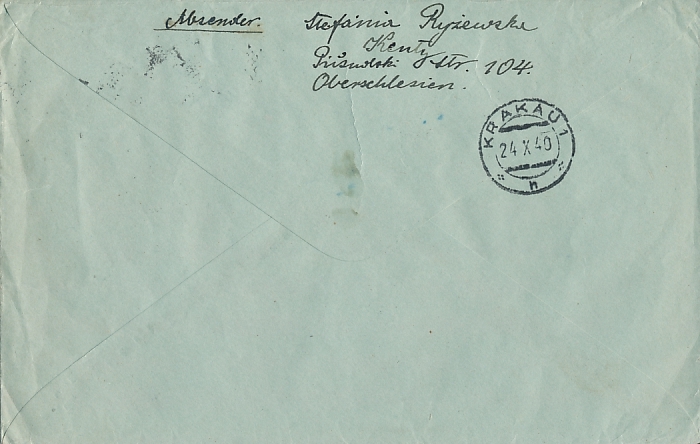 Absender. Stefánia Ryżewska
Kenty
Piłsudski Str. 104.
Oberschlesien.
KRAKAU 1
24 X 40
h